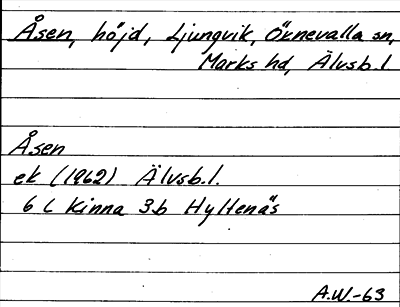 Åsen, höjd, Ljungvik, Öxnevalla sn,
Marks hd, Älvsb.l
Åsen
ek (1962) Älvsb.l.
6 C Kinna 3b Hyltenäs
A.W.-63